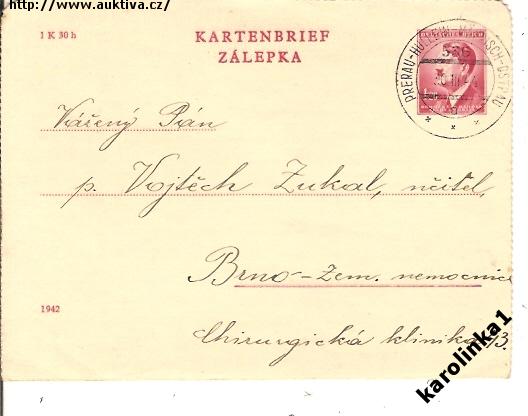 http://www.auktiva.cz/
1 K 30 h
KARTENBRIEF
ZÁLEPKA
PRERAU-HULLEIN-MÄHRISCH-OSTRAU
Vážený Pán
p. Vojtěch Zukal, učitel,
Brno-Zem. nemocnice
1942
Chirurgická klinika /3.
karolinka1